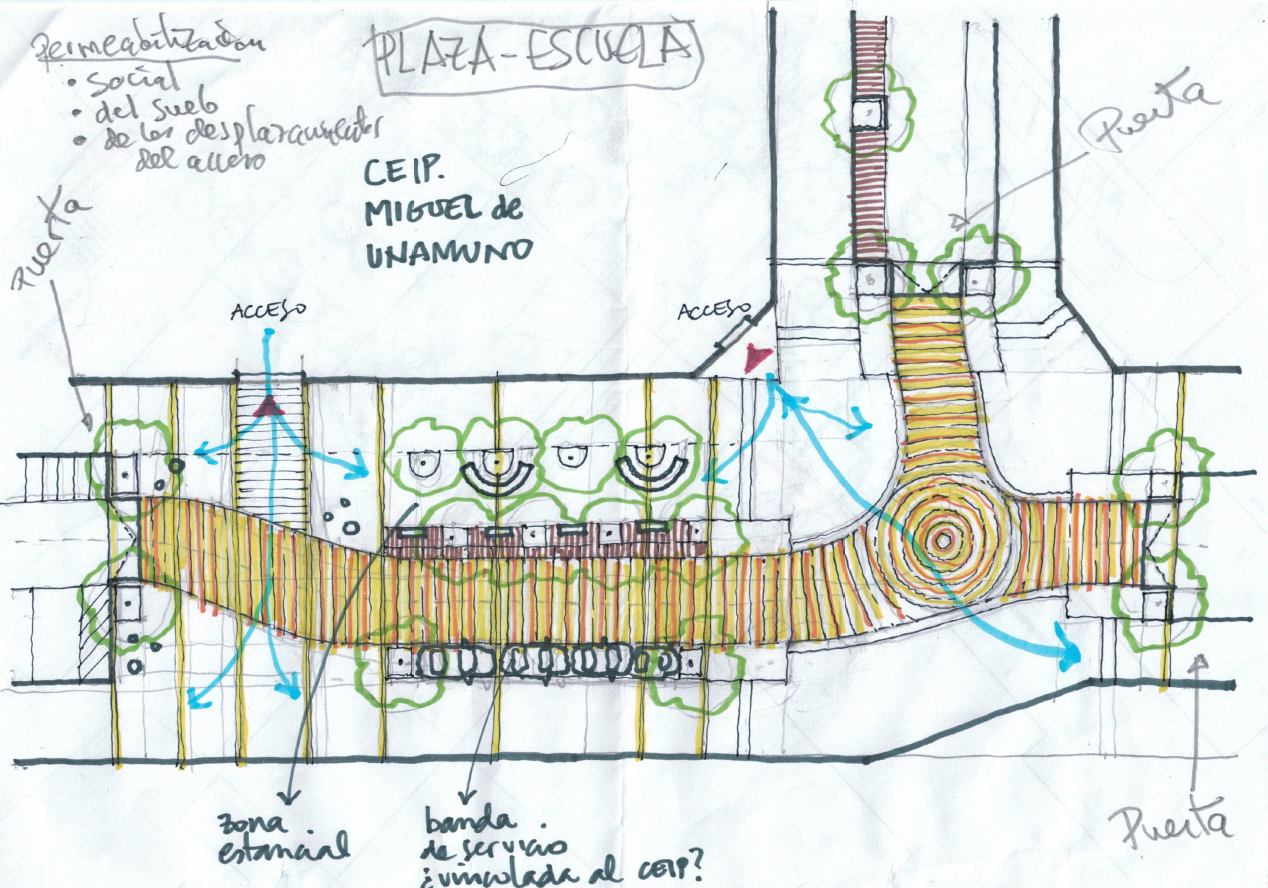 Permeabilización
• Social
• del suelo
• de los desplazamientos
del acceso
PLAZA-ESCUELA
CEIP.
MIGUEL de
UNAMUNO
Puerta
Puerta
ACCESO
ACCESO
zona
estancial
banda
de servicio
¿vinculada al CEIP?
Puerta